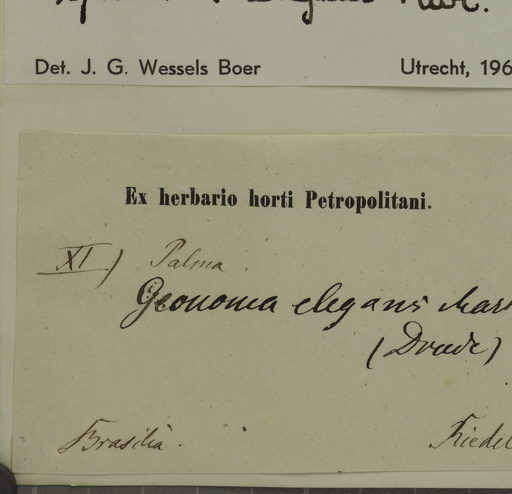 Det. J. G. Wessels Boer Utrecht, 196
Ex herbario horti Petropolitani.
XI) Palma.
Geonoma elegans Mart
(Drude)
Brasilia. Riedel